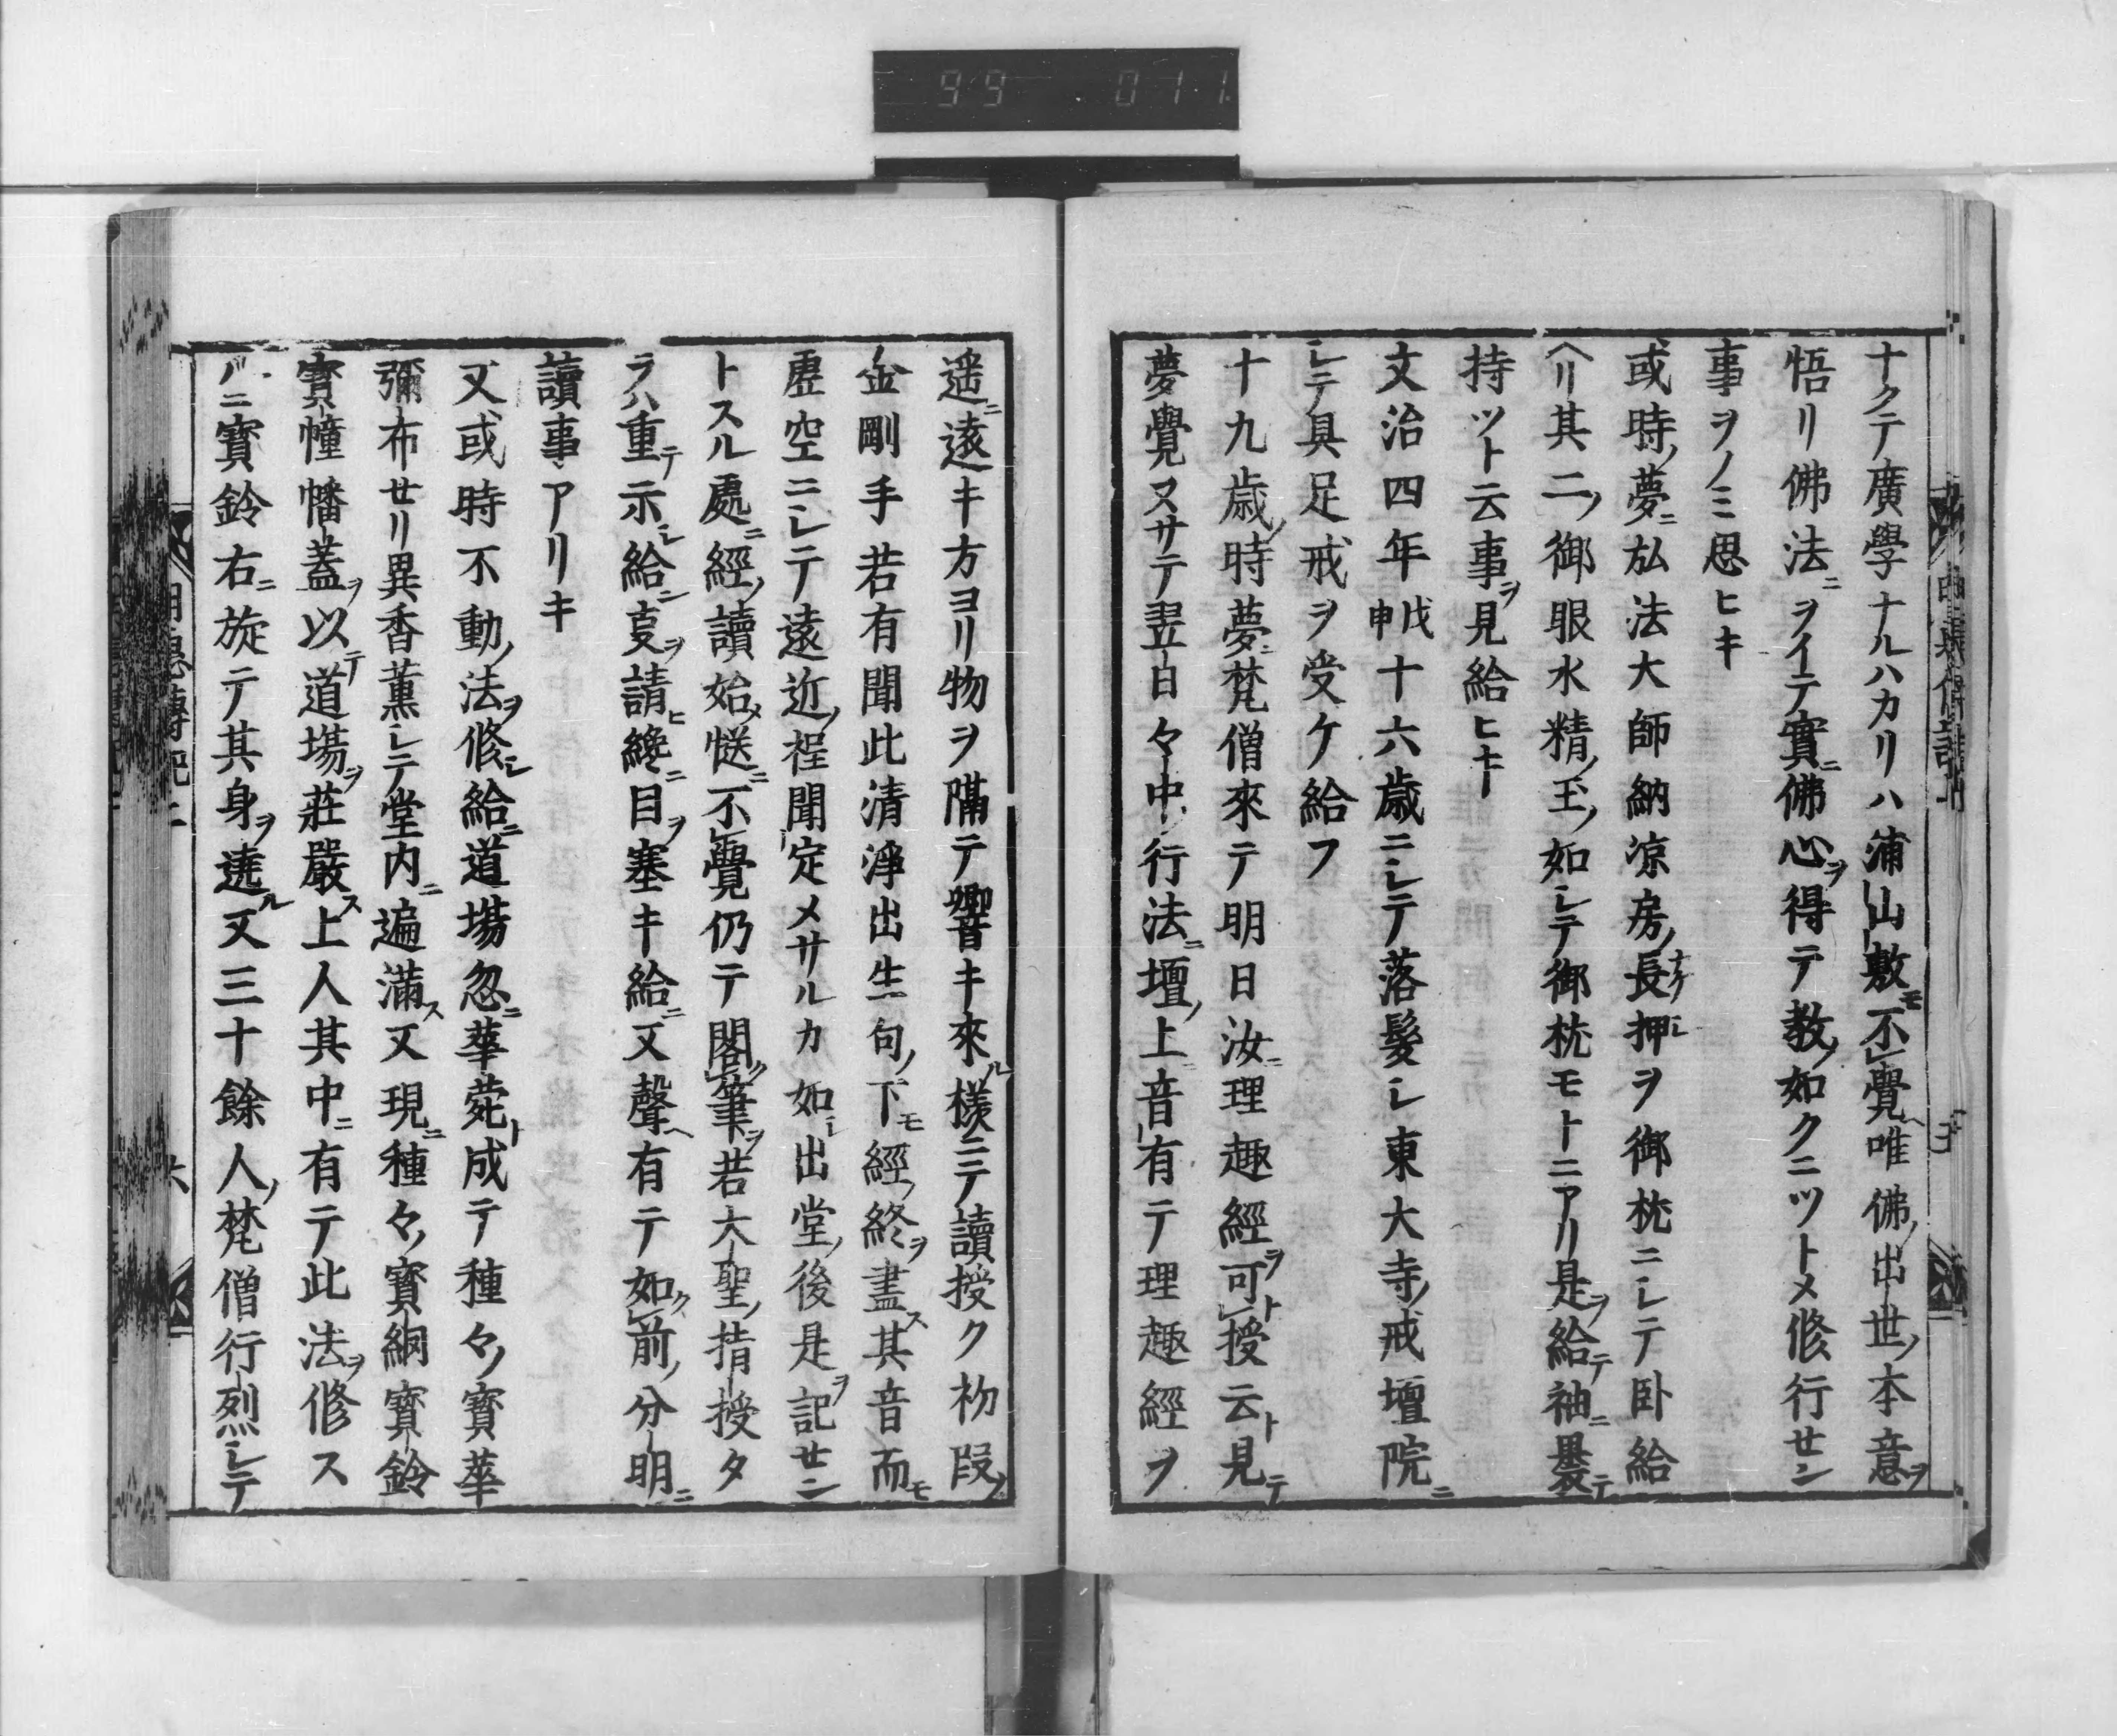 99 011
ナクテ廣學ナルハカリハ浦山敷モ不覺ヘ唯佛ノ出世ノ本意ヲ
悟リ佛法ニヲイテ實ニ佛心ヲ得テ教ノ如クニツトメ修行セン
事ヲノミ思ヒキ
或時ノ夢ニ弘法大師納凉房ノ長押ナケシヲ御枕ニシテ卧給
ヘリ其二ノ御眼水精ノ玉ノ如シテ御枕モトニアリ是ヲ給テ袖ニ裹テ
持ツト云事ヲ見給ヒキ
文治四年戊申十六歳ニシテ落髮シ東大寺ノ戒壇院ニ
シテ具足戒ヲ受ケ給フ
十九歳ノ時夢ニ梵僧來テ明日汝ニ理趣經ヲ可ト授云ト見テ
夢覺ヌサテ翌日々中行法ニ壇ノ上ニ音有テ理趣經ヲ
遥ニ遠キ方ヨリ物ヲ隔テ響キ來ル様ニテ讀授ク初段ノ
金剛手若有聞此清淨出生句ノ下モ經ノ終ヲ盡ス其音而モ
虚空ニシテ遠近ノ程聞定メサルカ如シ出堂ノ後是ヲ記セン
トスル處ニ經ノ讀始メ慥ニ不覺仍テ閣ク筆ヲ若大聖ノ指授タ
ラハ重テ示シ給ト䕫ヲ請ヒ纔ニ目ヲ塞キ給ニ又聲ヘ有テ如ク前ノ分明ニ
讀事アリキ
又或時不動ノ法ヲ修シ給ニ道場忽ニ華菀ト成テ種々ノ寳華
彌布セリ異香薫シテ堂内ニ遍滿ス又現ニ種々ノ寳網寳鈴
寳幢幡蓋ヲ以テ道場ヲ莊嚴ス上人其中ニ有テ此法ヲ修ス
ハニ寳鈴右ニ旋テ其身ヲ遶ル又三十餘人ノ梵僧行烈シテ
明惠傳記二
六